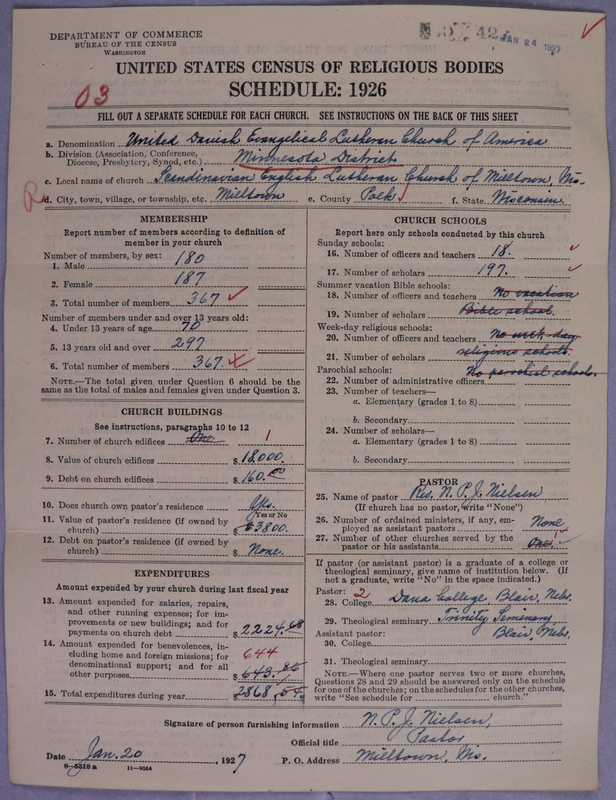 DEPARTMENT OF COMMERCE
BUREAU OF THE CENSUS
WASHINGTON
42
JAN 24 1927
UNITED STATES CENSUS OF RELIGIOUS BODIES
SCHEDULE: 1926
03
FILL OUT A SEPARATE SCHEDULE FOR EACH CHURCH. SEE INSTRUCTIONS ON THE BACK OF THIS SHEET
a. Denomination United Danish Evangelical Lutheran Church of America
b. Division (Association, Conference, Diocese, Presbytery, Synod, etc.) Minnesota District
c. Local name of church Scandinavian English Lutheran Church of Milltown, Wis.
R
d. City, town, village, or township, etc. Milltown e. County Polk f. State Wisconsin
MEMBERSHIP
Report number of members according to definition of
member in your church
Number of members, by sex:
1. Male 180
2. Female 187
3. Total number of members 367
Number of members under and over 13 years old:
4. Under 13 years of age 70
5. 13 years old and over 297
6. Total number of members 367
NOTE.—The total given under Question 6 should be the
same as the total of males and females given under Question 3.
CHURCH BUILDINGS
See instructions, paragraphs 10 to 12
7. Number of church edifices One 1
8. Value of church edifices $18000.
9. Debt on church edifices $160.00
10. Does church own pastor's residence Yes.
Yes or No
11. Value of pastor's residence (if owned by
church) $3800.
12. Debt on pastor's residence (if owned by
church) $None.
EXPENDITURES
Amount expended by your church during last fiscal year
13. Amount expended for salaries, repairs,
and other running expenses; for im-
provements or new buildings; and for
payments on church debt $2224.68
14. Amount expended for benevolences, in-
cluding home and foreign missions; for
denominational support; and for all
other purposes 644 $643.86
15. Total expenditures during year 2868.54
CHURCH SCHOOLS
Report here only schools conducted by this church
Sunday schools:
16. Number of officers and teachers 18.
17. Number of scholars 197.
Summer vacation Bible schools:
18. Number of officers and teachers No vacation
19. Number of scholars Bible school.
Week-day religious schools:
20. Number of officers and teachers No week-day
21. Number of scholars religious schools.
Parochial schools: No parochial schools.
22. Number of administrative officers
23. Number of teachers—
a. Elementary (grades 1 to 8)
b. Secondary
24. Number of scholars—
a. Elementary (grades 1 to 8)
b. Secondary
PASTOR
25. Name of pastor Rev. N. P. J. Nielsen
(If church has no pastor, write "None")
26. Number of ordained ministers, if any, em-
ployed as assistant pastors None
27. Number of other churches served by the
pastor or his assistants One. 1
If pastor (or assistant pastor) is a graduate of a college or
theological seminary, give name of institution below. (If
not a graduate, write "No" in the space indicated.)
Pastor: 2
28. College Dana College Blair, Nebr.
29. Theological seminary Trinity Seminary
Assistant pastor: Blair, Nebr.
30. College
31. Theological seminary
NOTE.—Where one pastor serves two or more churches,
Questions 28 and 29 should be answered only on the schedule
for one of the churches; on the schedules for the other churches,
write "See schedule for church."
Signature of person furnishing information N. P. J. Nielsen,
Official title Pastor
Date Jan. 20, 1927 P. O. Address Milltown, Wis.
8—5518 a 11—9054